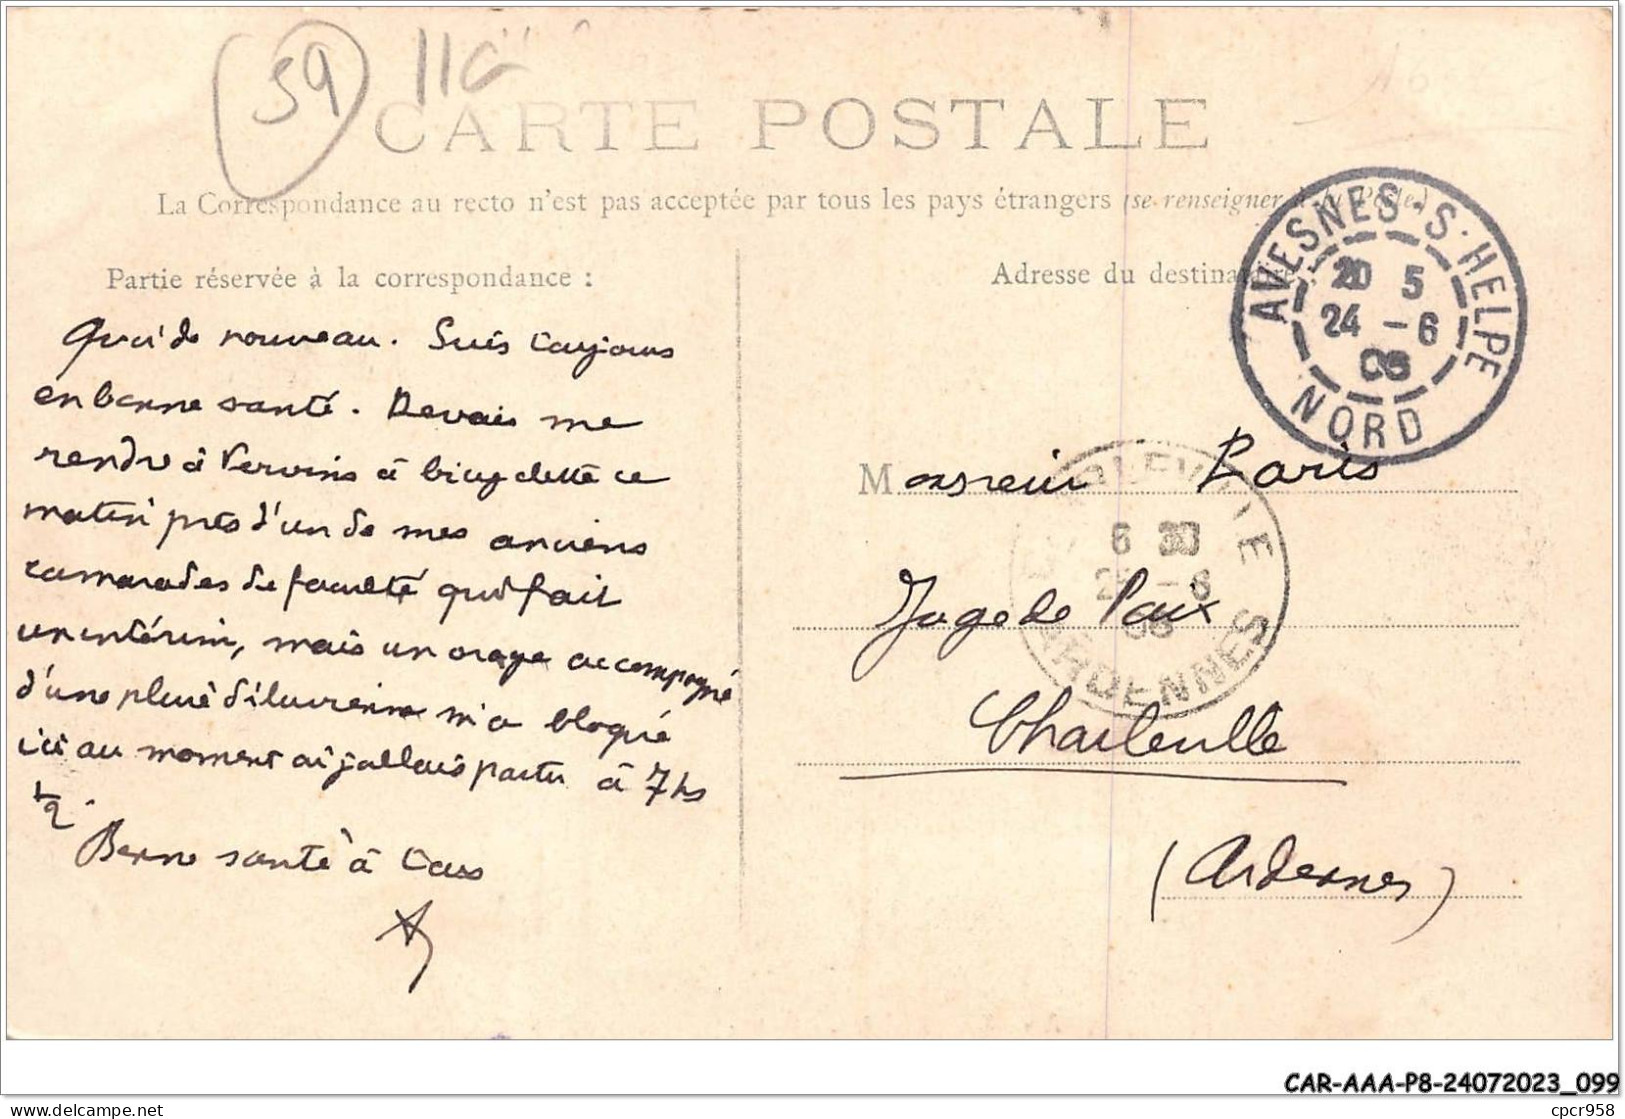 59 11G
CARTE POSTALE
La Correspondance au recto n'est pas acceptée par tous les pays étrangers (se renseigner à la Poste)
Partie réservée à la correspondance :
Quoi de nouveau. Suis toujours
en bonne santé. Devais me
rendre à Vervins à bicyclette ce
matin près d'un de mes anciens
camarades de faculté qui fait
un intérim, mais un orage accompagné
d'une pluie diluvienne m'a bloqué
ici au moment où j'allais partir à 7 hs
1/2.
Bonne santé à tous
Adresse du destinataire :
AVESNES-S-HELPE
20 5
24 - 6
06
NORD
Monsieur Paris
Juge de Paix
Charleville
(Ardennes)
CHARLEVILLE
6 30
25 - 6
06
ARDENNES
CAR-AAA-P8-24072023_099
Delcampe.net
cpcr958